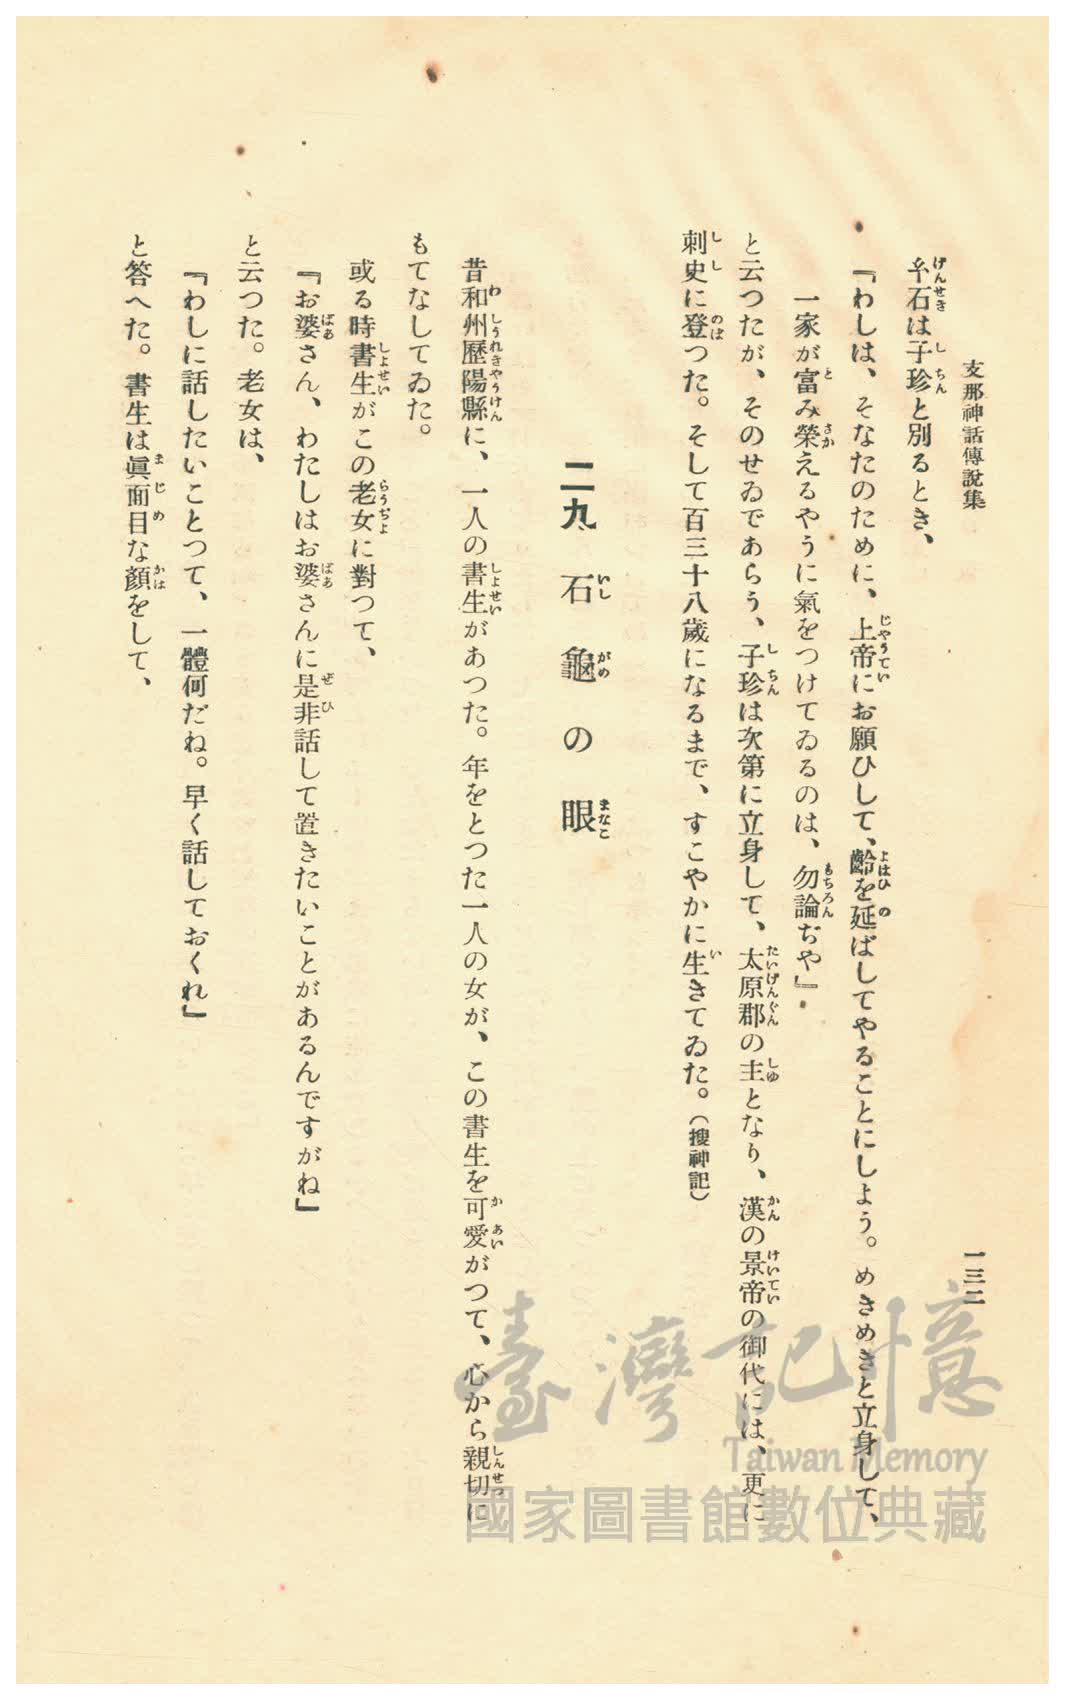 支那神話傳說集
一三二
玄石は子珍と別るとき、
『わしは、そなたのために、上帝にお願ひして、齡を延ばしてやることにしよう。めきめきと立身して、
一家が富み榮えるやうに氣をつけてゐるのは、勿論ぢや』
と云つたが、そのせゐであらう、子珍は次第に立身して、太原郡の主となり、漢の景帝の御代には、更に
刺史に登つた。そして百三十八歲になるまで、すこやかに生きてゐた。（搜神記）
二九 石龜の眼
昔和州歷陽縣に、一人の書生があつた。年をとつた一人の女が、この書生を可愛がつて、心から親切に
もてなしてゐた。
或る時書生がこの老女に對つて、
『お婆さん、わたしはお婆さんに是非話して置きたいことがあるんですがね』
と云つた。老女は、
『わしに話したいことつて、一體何だね。早く話しておくれ』
と答へた。書生は眞面目な顏をして、
臺灣記憶
Taiwan Memory
國家圖書館數位典藏